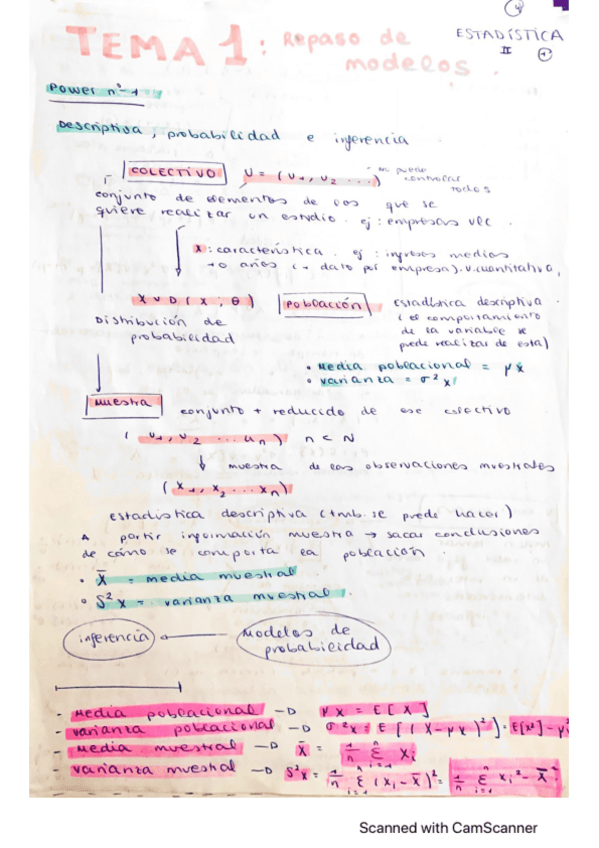 ESTADÍSTICA
II
TEMA 1: Repaso de
modelos.
Power nº 1
Descriptiva, probabilidad e inferencia
COLECTIVO U = (U1, U2 ...) → no puedo
controlar
todos
conjunto de elementos de los que se
quiere realizar un estudio. ej: empresas VLC.
X: característica. ej: ingresos medios
10 años (1 dato por empresa). v.cuantitativa,
X ∪ D (X; θ) POBLACIÓN estadística descriptiva
Distribución de (el comportamiento
probabilidad de la variable se
puede realizar de esta)
• Media poblacional = μx
• varianza = σ²x
MUESTRA conjunto + reducido de ese colectivo
(U1, U2 ... Un) n < N
↓ muestra de las observaciones muestrales
(X1, X2 ... Xn)
estadística descriptiva (tmb. se puede hacer)
A partir información muestra → sacar conclusiones
de cómo se comporta la población.
• X̄ = media muestral
• S²x = varianza muestral.
inferencia ← Modelos de
probabilidad
- Media poblacional → μx = E[X]
- varianza poblacional → σ²x = E[(X-μx)²] = E[x²] - μ²
- Media muestral → X̄ = 1/n Σ(i=1, n) Xi
- varianza muestral → S²x = 1/n Σ(i=1, n) (Xi - X̄)² = 1/n Σ(i=1, n) Xi² - X̄²
Scanned with CamScanner